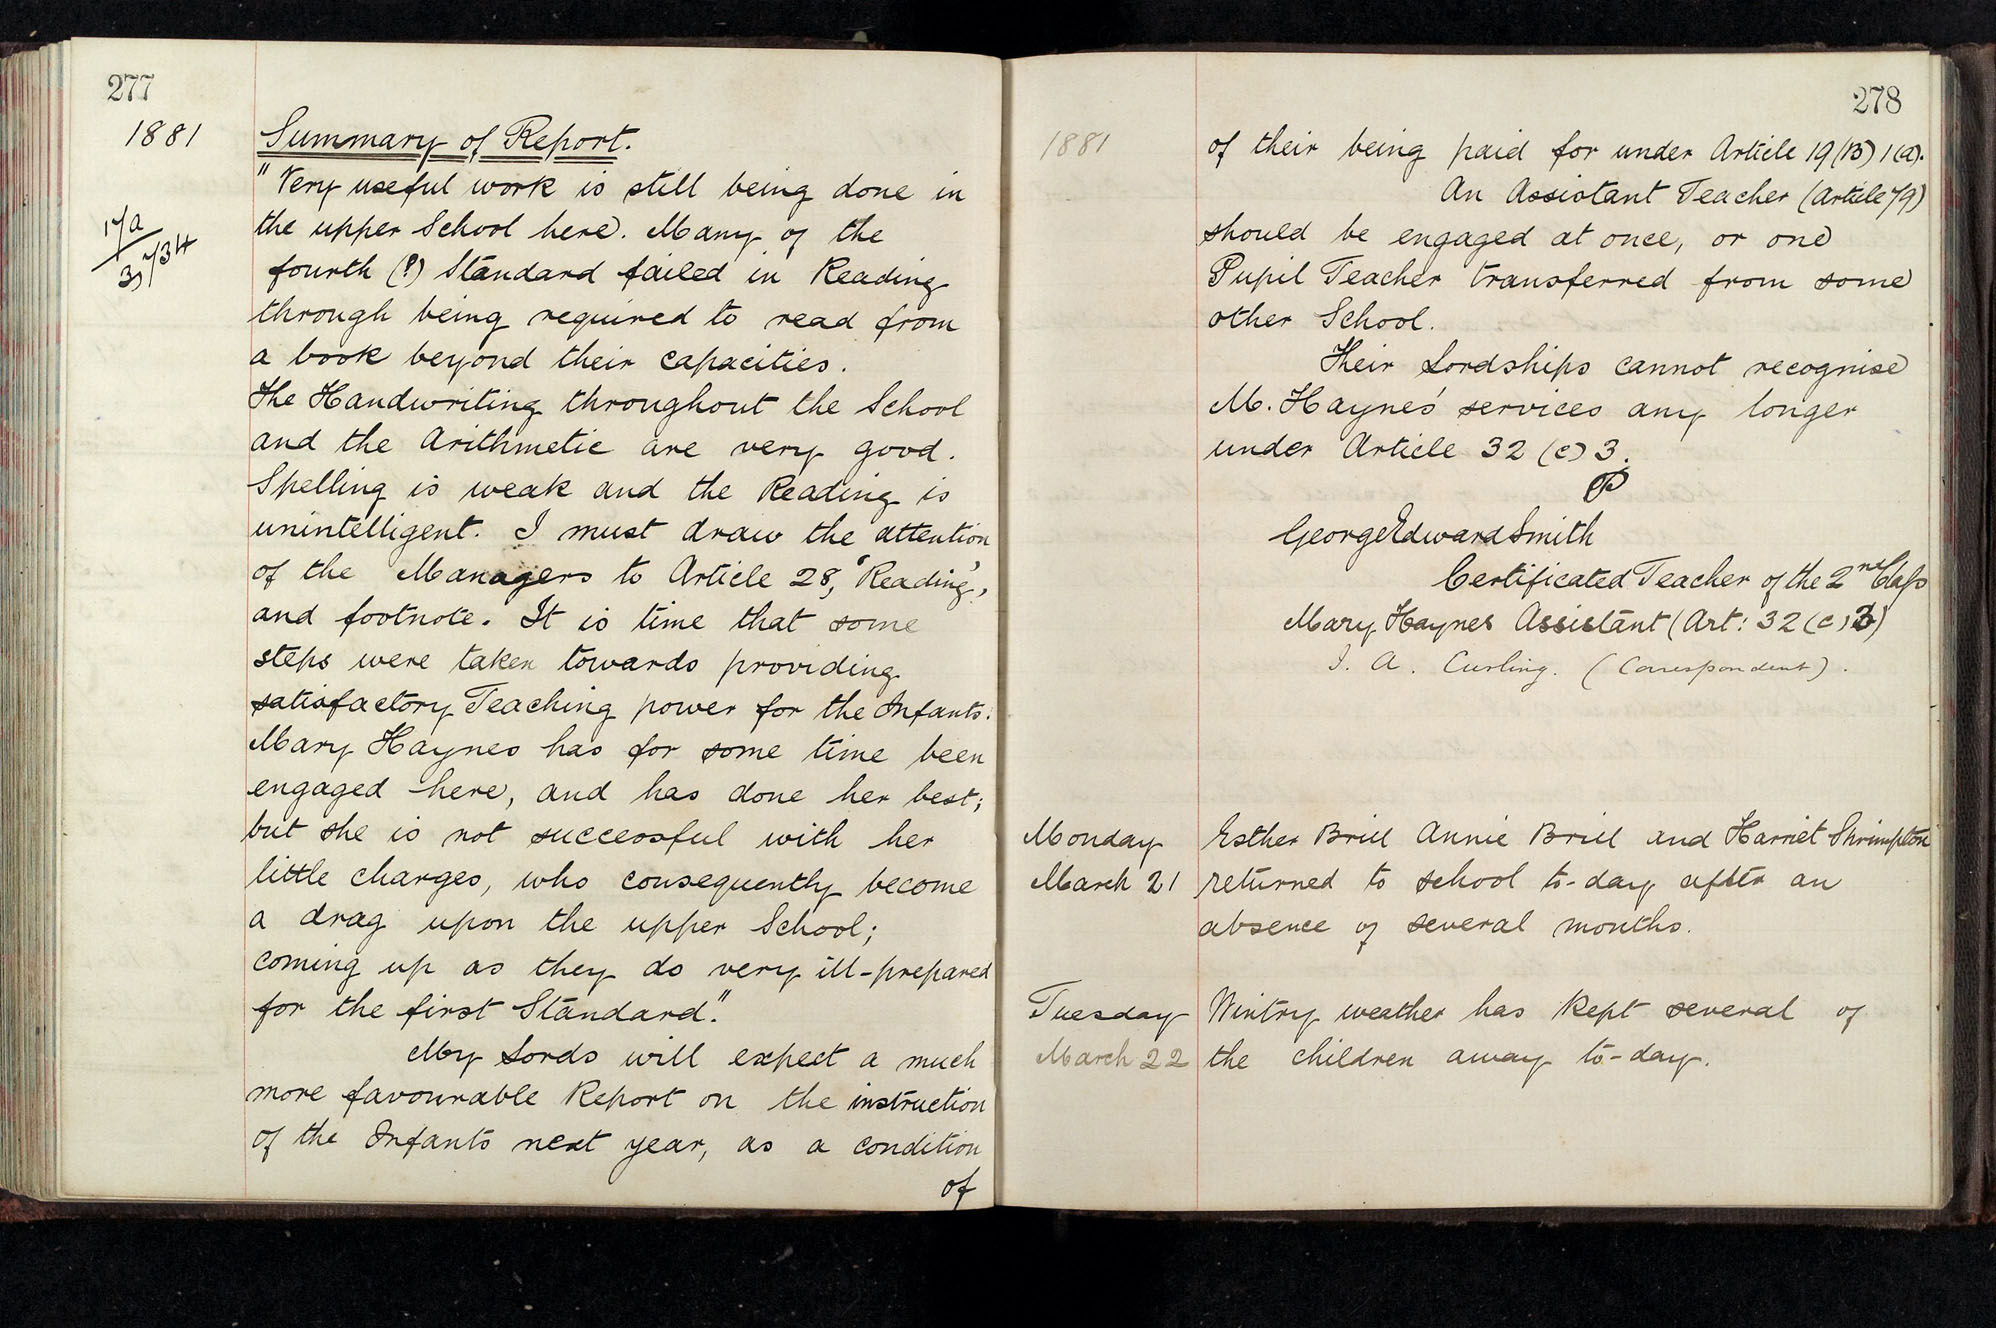 277
1881
Summary of Report.
"Very useful work is still being done in
the upper School here. Many of the
fourth (?) Standard failed in Reading
through being required to read from
a book beyond their capacities.
The Handwriting throughout the School
and the Arithmetic are very good.
Spelling is weak and the Reading is
unintelligent. I must draw the attention
of the Managers to Article 28, 'Reading',
and footnote. It is time that some
steps were taken towards providing
satisfactory Teaching power for the Infants.
Mary Haynes has for some time been
engaged here, and has done her best;
but she is not successful with her
little charges, who consequently become
a drag upon the upper School;
coming up as they do very ill-prepared
for the first Standard."
My Lords will expect a much
more favourable Report on the instruction
of the Infants next year, as a condition
of
278
1881
of their being paid for under Article 19 (B) 1 (a).
An Assistant Teacher (Article 79)
should be engaged at once, or one
Pupil Teacher transferred from some
other School.
Their Lordships cannot recognise
M. Haynes' services any longer
under Article 32 (c) 3.
George Edward Smith
Certificated Teacher of the 2nd Class
Mary Haynes Assistant (Art: 32 (c) 3)
J. A. Curling. (Correspondent).
Monday Esther Brill Annie Brill and Harriet Shrimpton
March 21 returned to school to-day after an
absence of several months.
Tuesday Wintry weather has kept several of
March 22 the children away to-day.